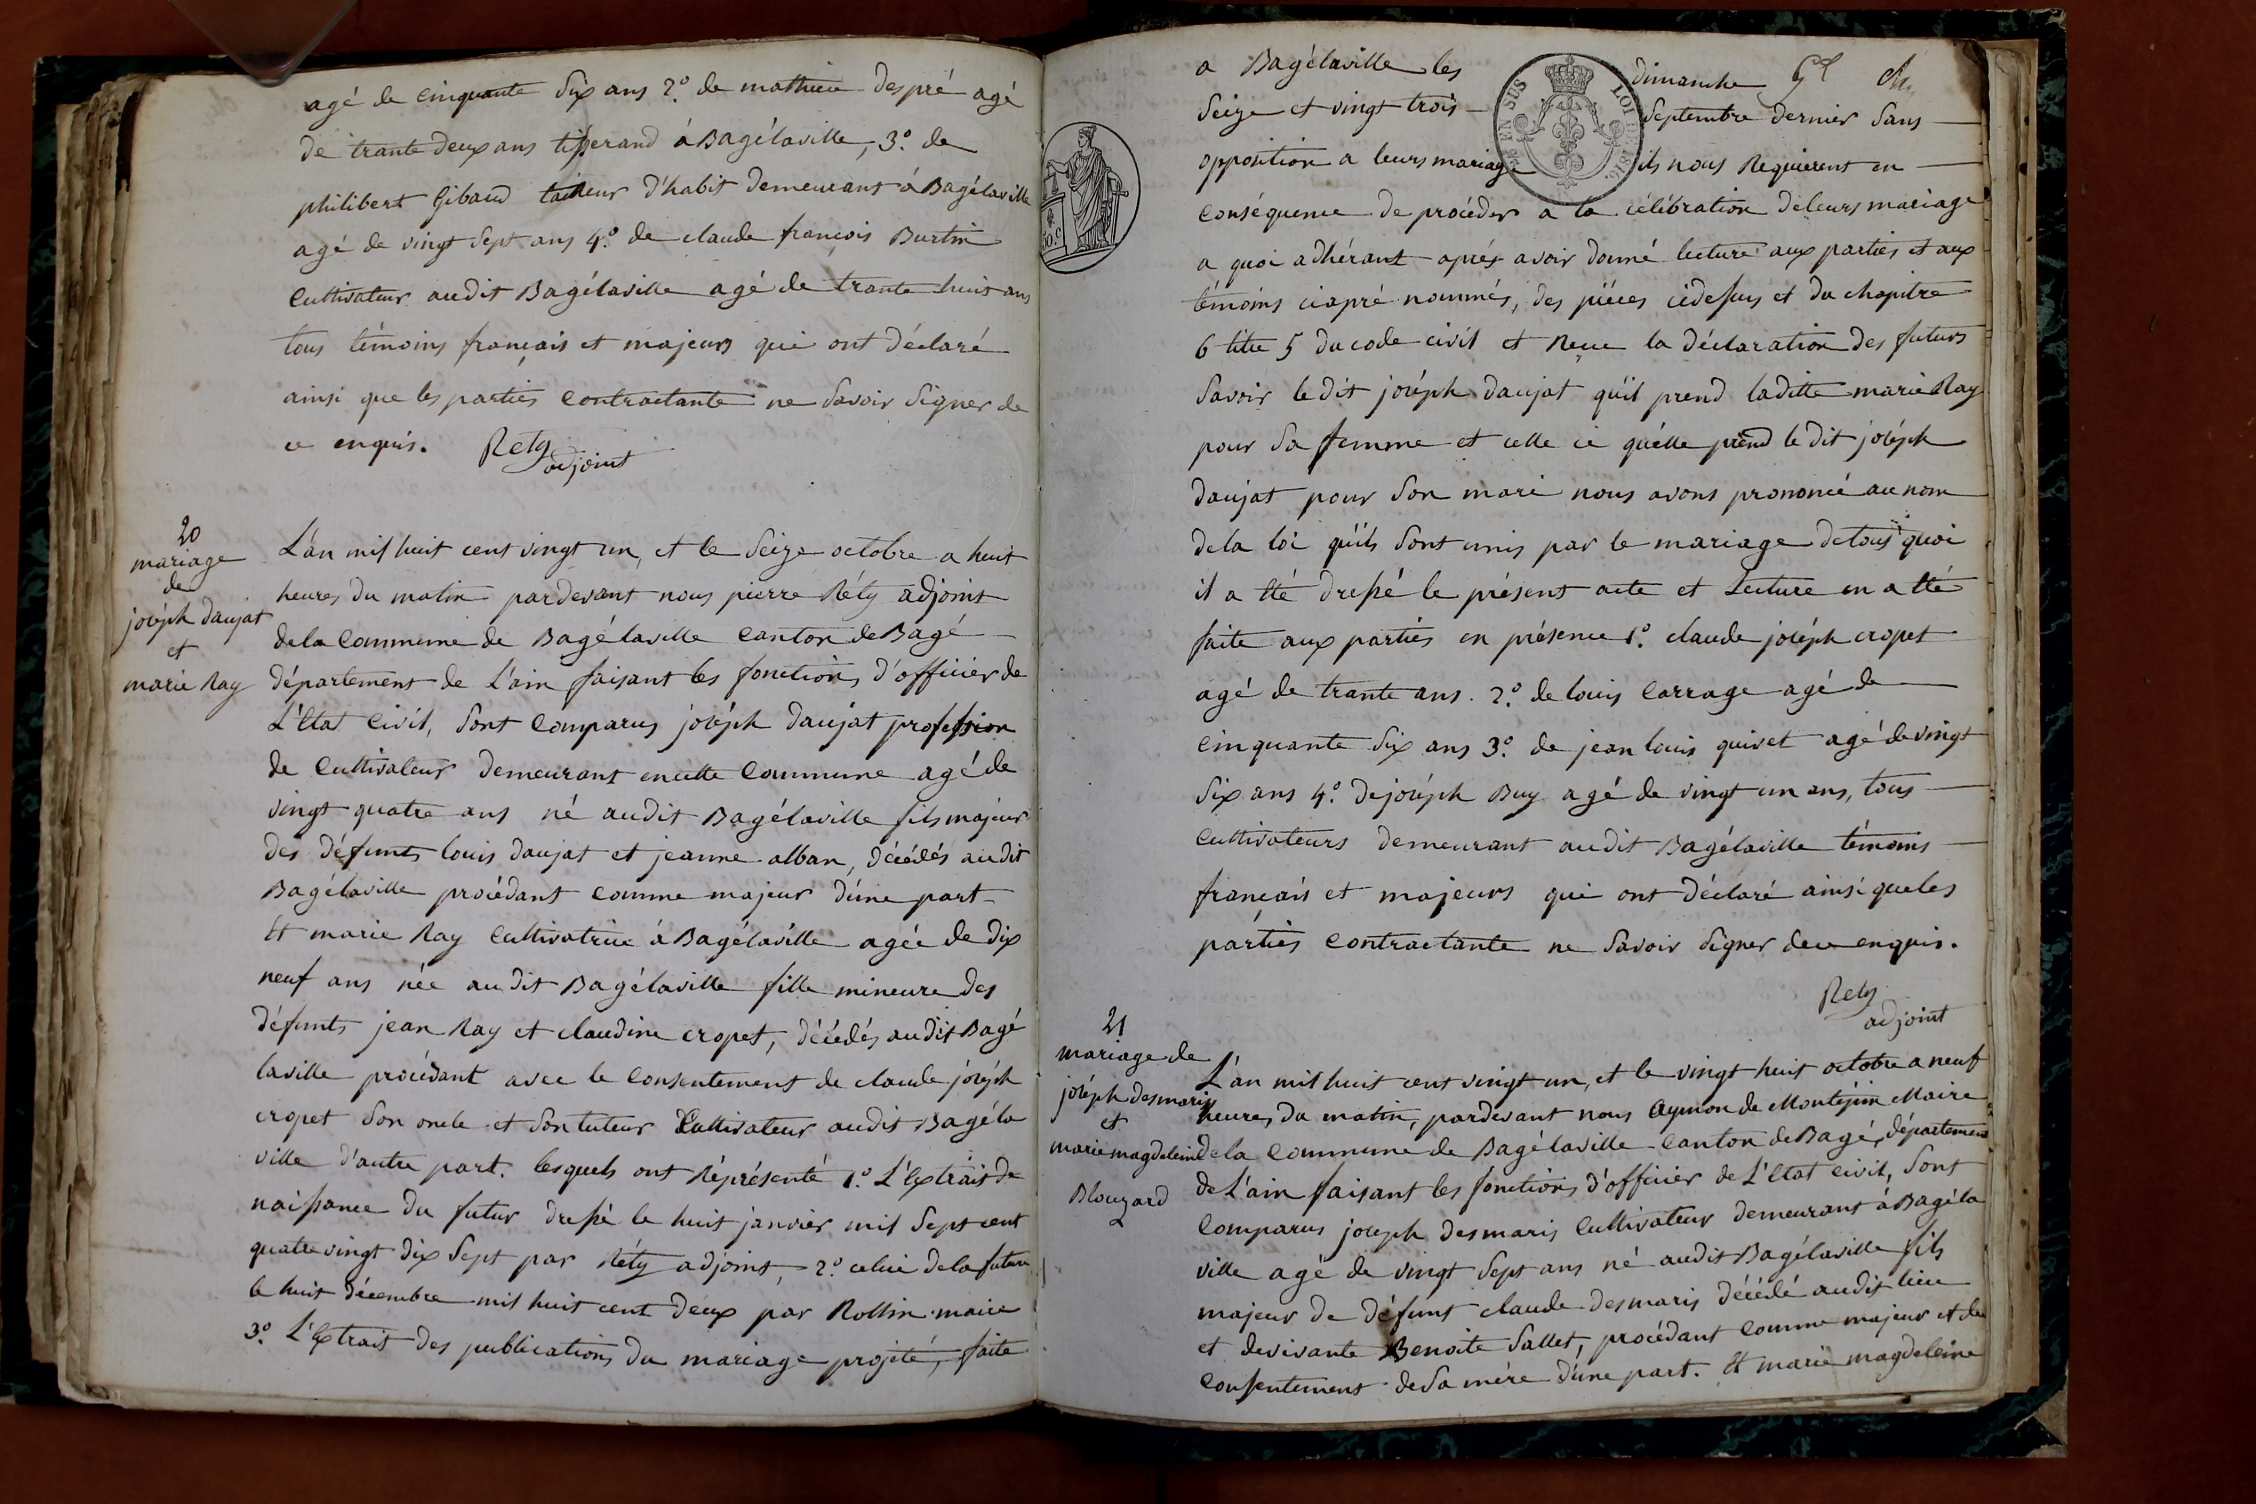 agé de cinquante Six ans 2.° de mathieu despré agé
de trante deux ans tisserand à Bagélaville, 3.° de
philibert Gibaud tailleur d'habit demeurant à Bagélaville
agé de vingt Sept ans 4.° de claude françois Burtin
Cultivateur audit Bagélaville agé de trante huit ans
tous témoins français et majeurs qui ont déclaré
ainsi que les parties contractante ne Savoir Signer de
ce enquis. Rety
adjoint
20
mariage
de
joséph daujat
et
marie Ray
L'an mil huit cent vingt un, et le Seize octobre a huit
heures du matin pardevant nous pierre Réty adjoint
de la Commune de Bagélaville Canton de Bagé
département de L'ain faisant les fonctions d'officier de
L'Etat Civil, Sont Comparus joséph daujat profession
de Cultivateur demeurant en cette Commune agé de
vingt quatre ans né audit Bagélaville fils majeur
des défunts louis daujat et jeanne alban, décédés audit
Bagélaville procédant comme majeur d'une part
Et marie Ray Cultivatrice à Bagélaville agée de dix
neuf ans née audit Bagélaville fille mineure des
défunts jean Ray et claudine cropet, décédés audit Bagé
laville procédant avec le Consentement de claude joséph
cropet Son oncle et Son tuteur Cultivateur audit Bagéla
ville d'autre part. lesquels ont Réprésenté 1.° L'Extrait de
naissance du futur dressé le huit janvier mil Sept cent
quatre vingt dix Sept par Réty adjoint, 2.° celui de la future
le huit décembre mil huit cent deux par Rollin maire
3.° L'Extrait des publications du mariage projeté, faite
a Bagélaville les dimanche
Seize et vingt trois Septembre dernier Sans
opposition a leurs mariage ils nous Requierent en
Conséquence de procéder a la célébration de leurs mariage
a quoi adhérant aprés avoir donné lecture aux parties et aux
témoins ciapré nommés, des piéces cidessus et du chapitre
6 titre 5 du code civil et Reçue la déclaration des futurs
Savoir le dit joséph daujat qu'il prend laditte marie Ray
pour Sa femme et celle ci qu'elle prend le dit joséph
daujat pour Son mari nous avons prononcé au nom
de la loi qu'ils Sont unis par le mariage de tous quoi
il a été dressé le présent acte et Lecture en a été
faite aux parties en présence 1.° claude joséph cropet
agé de trante ans. 2.° de louis Carrage agé de
Cinquante Six ans 3.° de jean louis quivet agé de vingt
Six ans 4.° de joséph Buy agé de vingt un ans, tous
Cultivateurs demeurant audit Bagélaville témoins
français et majeurs qui ont déclaré ainsi que les
parties contractante ne Savoir Signer de ce enquis.
Rety
adjoint
21
mariage de
joséph desmaris
et
marie magdeleine
Blouzard
L'an mil huit cent vingt un, et le vingt huit octobre a neuf
heures du matin, pardevant nous Aymon de Montépin Maire
de la Commune de Bagélaville Canton de Bagé, département
de L'ain faisant les fonctions d'officier de L'Etat civil, Sont
Comparus joseph desmaris Cultivateur demeurant à Bagéla
ville agé de vingt Sept ans né audit Bagélaville fils
majeur de défunt claude desmaris décédé audit lieu
et de vivante Benoite Sallet, procédant comme majeur et du
Consentement de Sa mére d'une part. Et marie magdeleine